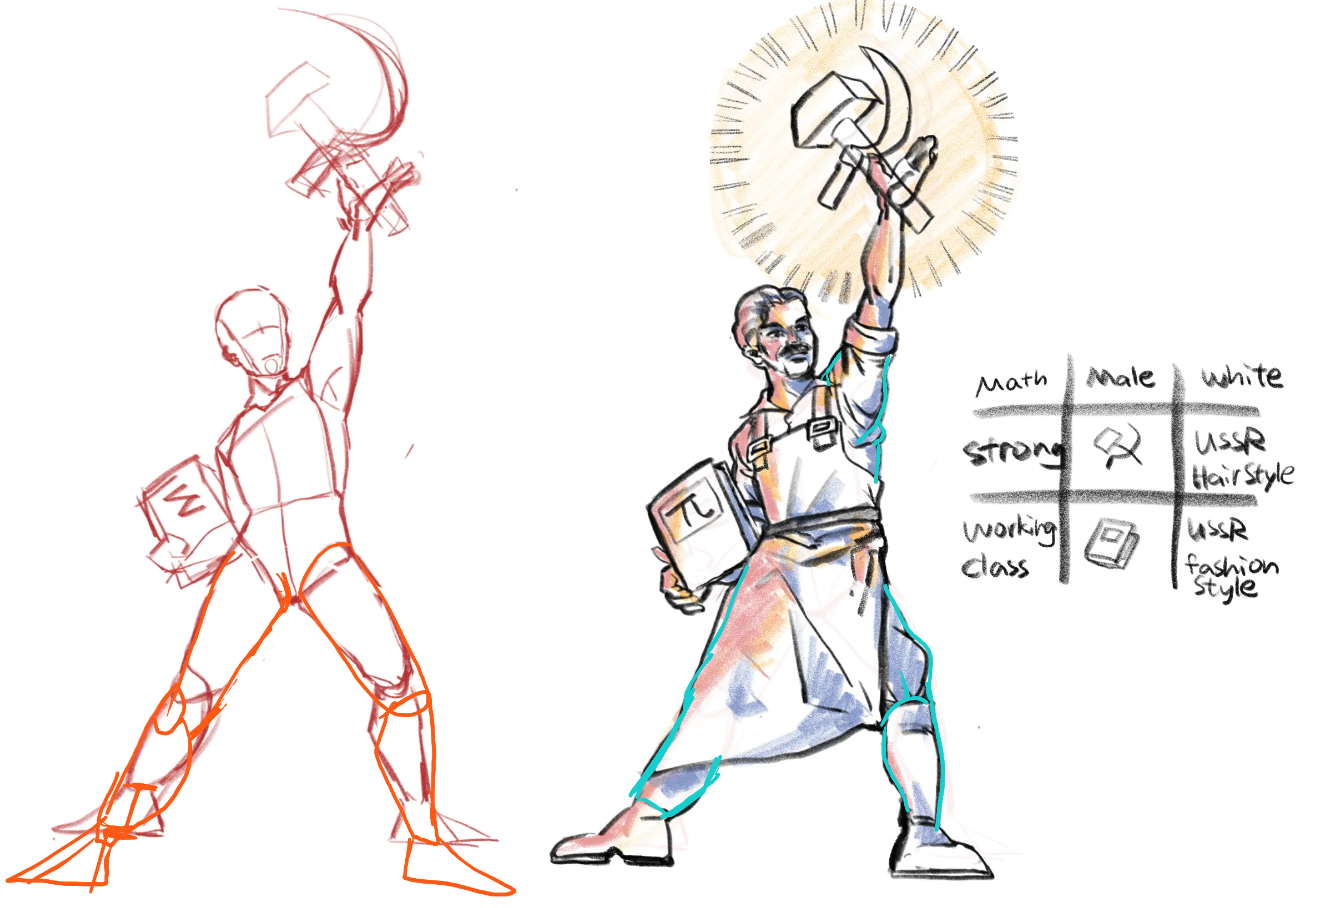 Σ
π
Math Male White
Strong USSR
HairStyle
Working USSR
class fashion
Style